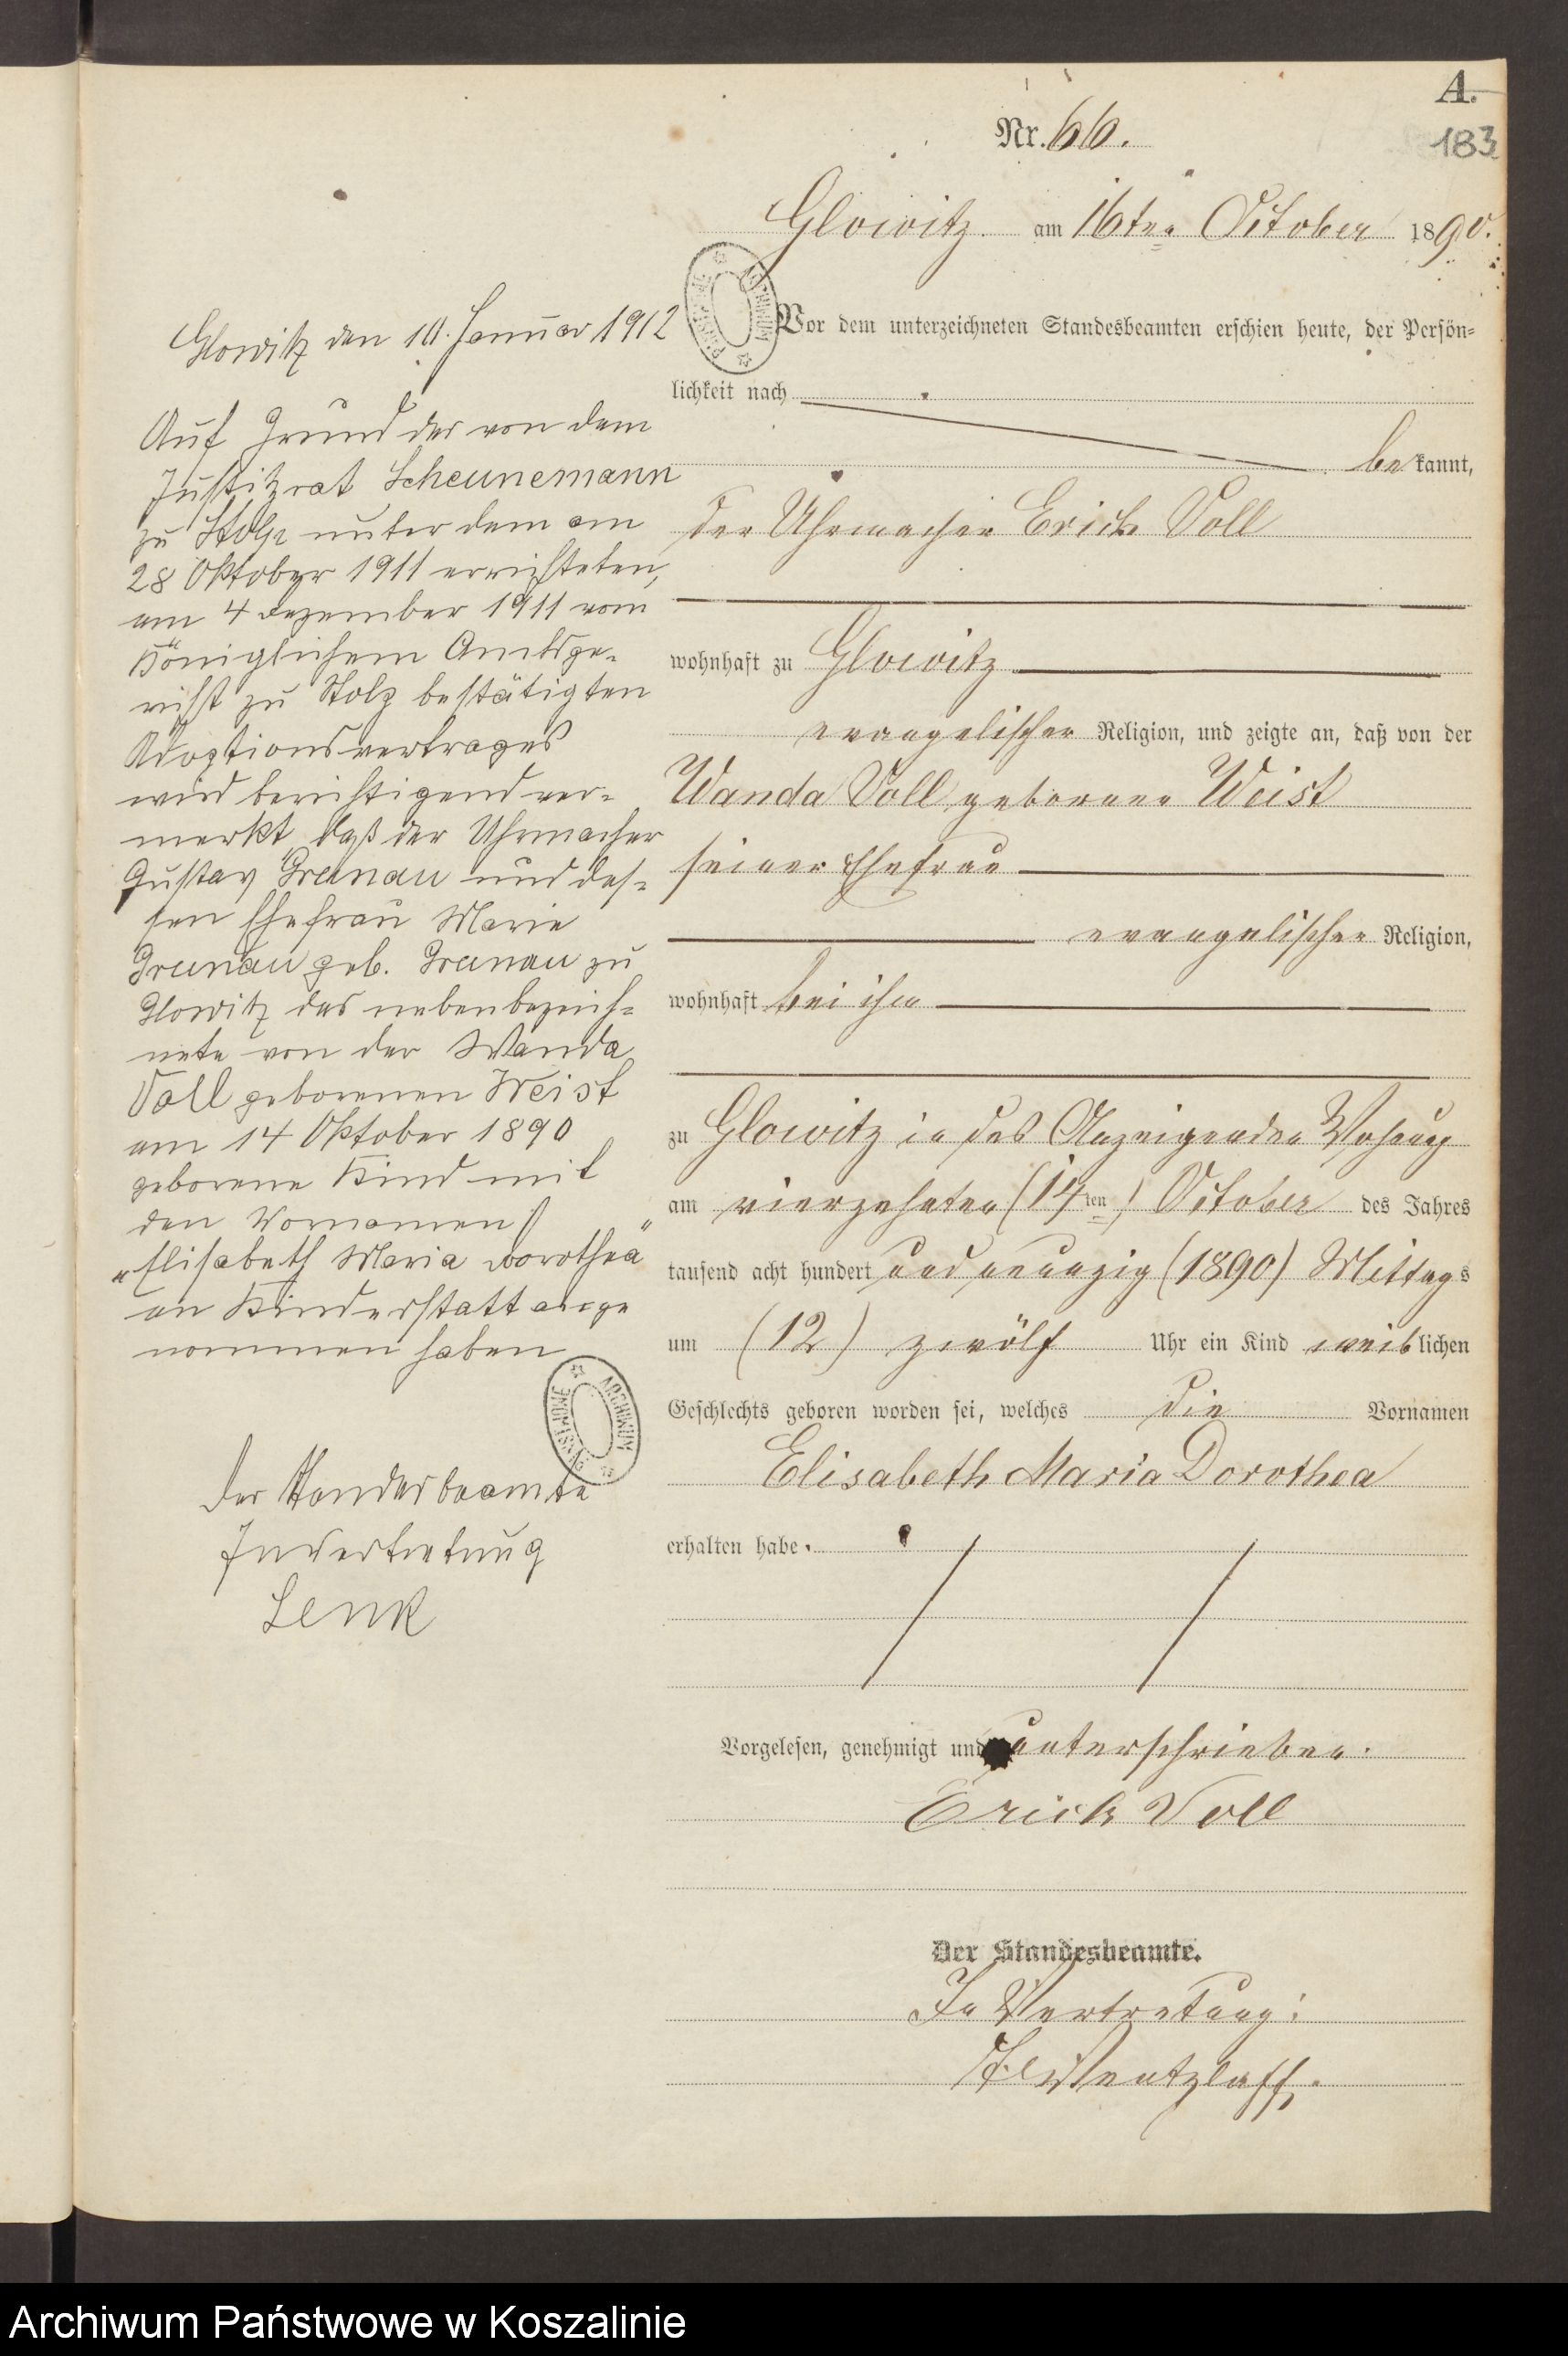 A.
183
Nr. 66.
Glowitz am 16ten October 1890.
Vor dem unterzeichneten Standesbeamten erschien heute, der Persön=
lichkeit nach
bekannt,
der Uhrmacher Erich Voll
wohnhaft zu Glowitz
evangelischer Religion, und zeigte an, daß von der
Wanda Voll geborene Weist
seiner Ehefrau
evangelischer Religion,
wohnhaft bei ihm
zu Glowitz in des Anzeigenden Wohnung
am vierzehnten (14ten) October des Jahres
tausend acht hundert und neunzig (1890) Mittags
um (12) zwölf Uhr ein Kind weiblichen
Geschlechts geboren worden sei, welches die Vornamen
Elisabeth Maria Dorothea
erhalten habe.
Vorgelesen, genehmigt und unterschrieben.
Erich Voll
Der Standesbeamte.
In Vertretung:
Wentzlaff.
Glowitz den 10. Januar 1912
Auf Grund des von dem
Justizrat Scheunemann
zu Stolp unter dem am
28 Oktober 1911 errichteten,
am 4 Dezember 1911 vom
Königlichem Amtsge-
richt zu Stolp bestätigten
Adoptionsvertrages
wird berichtigend ver-
merkt, daß der Uhrmacher
Gustav Grunau und des-
sen Ehefrau Marie
Grunau geb. Grunau zu
Glowitz das nebenbezeich-
nete von der Wanda
Voll geborenen Weist
am 14 Oktober 1890
geborene Kind mit
den Vornamen
„Elisabeth Maria Dorothea"
an Kindesstatt ange
nommen haben
Der Standesbeamte
In Vertretung
Lenk
ARCHIWUM PAŃSTWOWE
ARCHIWUM PAŃSTWOWE
Archiwum Państwowe w Koszalinie